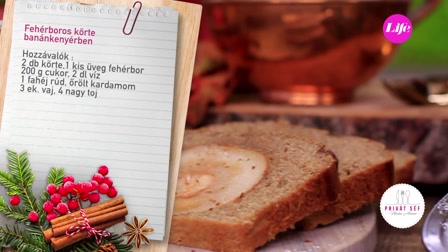 Fehérboros körte
banánkenyérben
Hozzávalók :
2 db körte,1 kis üveg fehérbor
200 g cukor, 2 dl víz
1 fahéj rúd, őrölt kardamom
3 ek. vaj, 4 nagy toj
Life
PRIVÁT SÉF